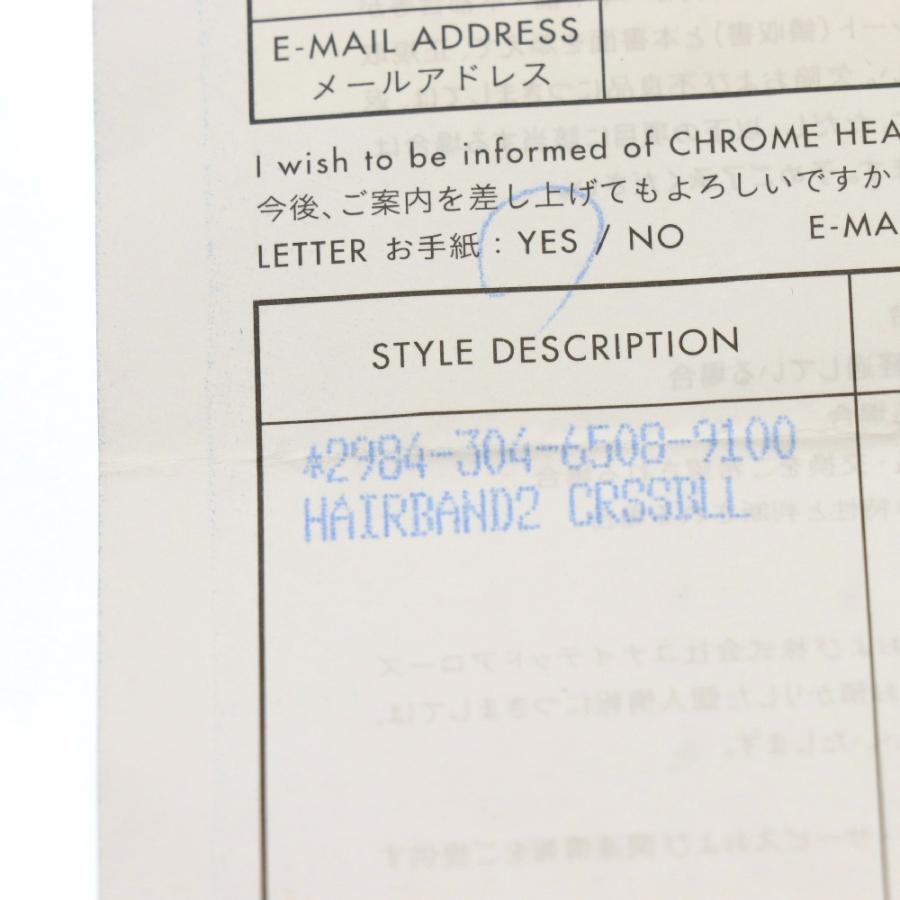 E-MAIL ADDRESS
メールアドレス
I wish to be informed of CHROME HEA
今後、ご案内を差し上げてもよろしいですか
LETTER お手紙 : YES / NO E-MA
STYLE DESCRIPTION
*2984-304-6508-9100
HAIRBAND2 CRSSBLL